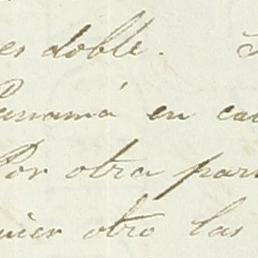 es doble.
Panamá en ca
Por otra par
uier otro las